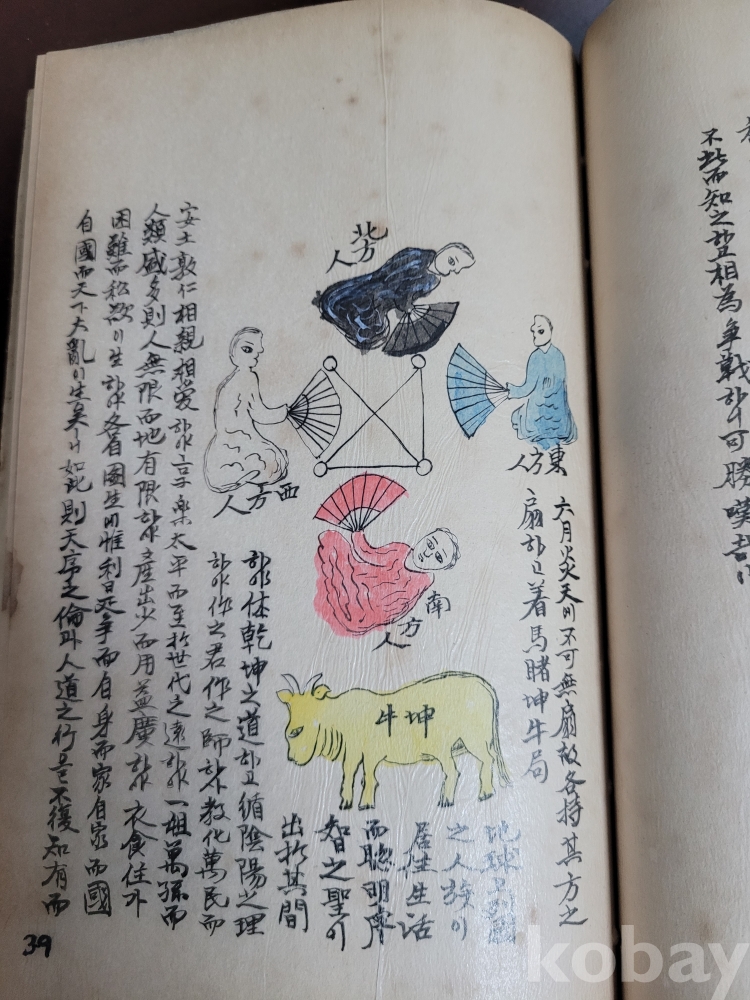 不此而知之하고相為争戰하니可勝嘆哉
六月炎天에不可無扇故各持其方之
扇하고着馬睹坤牛局
東方人
北方人
西方人
南方人
坤牛
地球
之人族이
居住生活
而聰明睿
智之聖이
出於其間
하야体乾坤之道하고循陰陽之理
하야作之君作之師하야教化萬民而
安土敦仁相親相愛하야享樂太平而至於世代之遠하야一祖萬孫而
人類盛多則人無限而地有限하야産出少而用益廣하야衣食住가
困難而私慾이生하야各看國生에惟利是爭而自身而家自家而國
自國而天下大亂이生矣니如此則天序之倫과人道之行을不復知有而
39
kobay